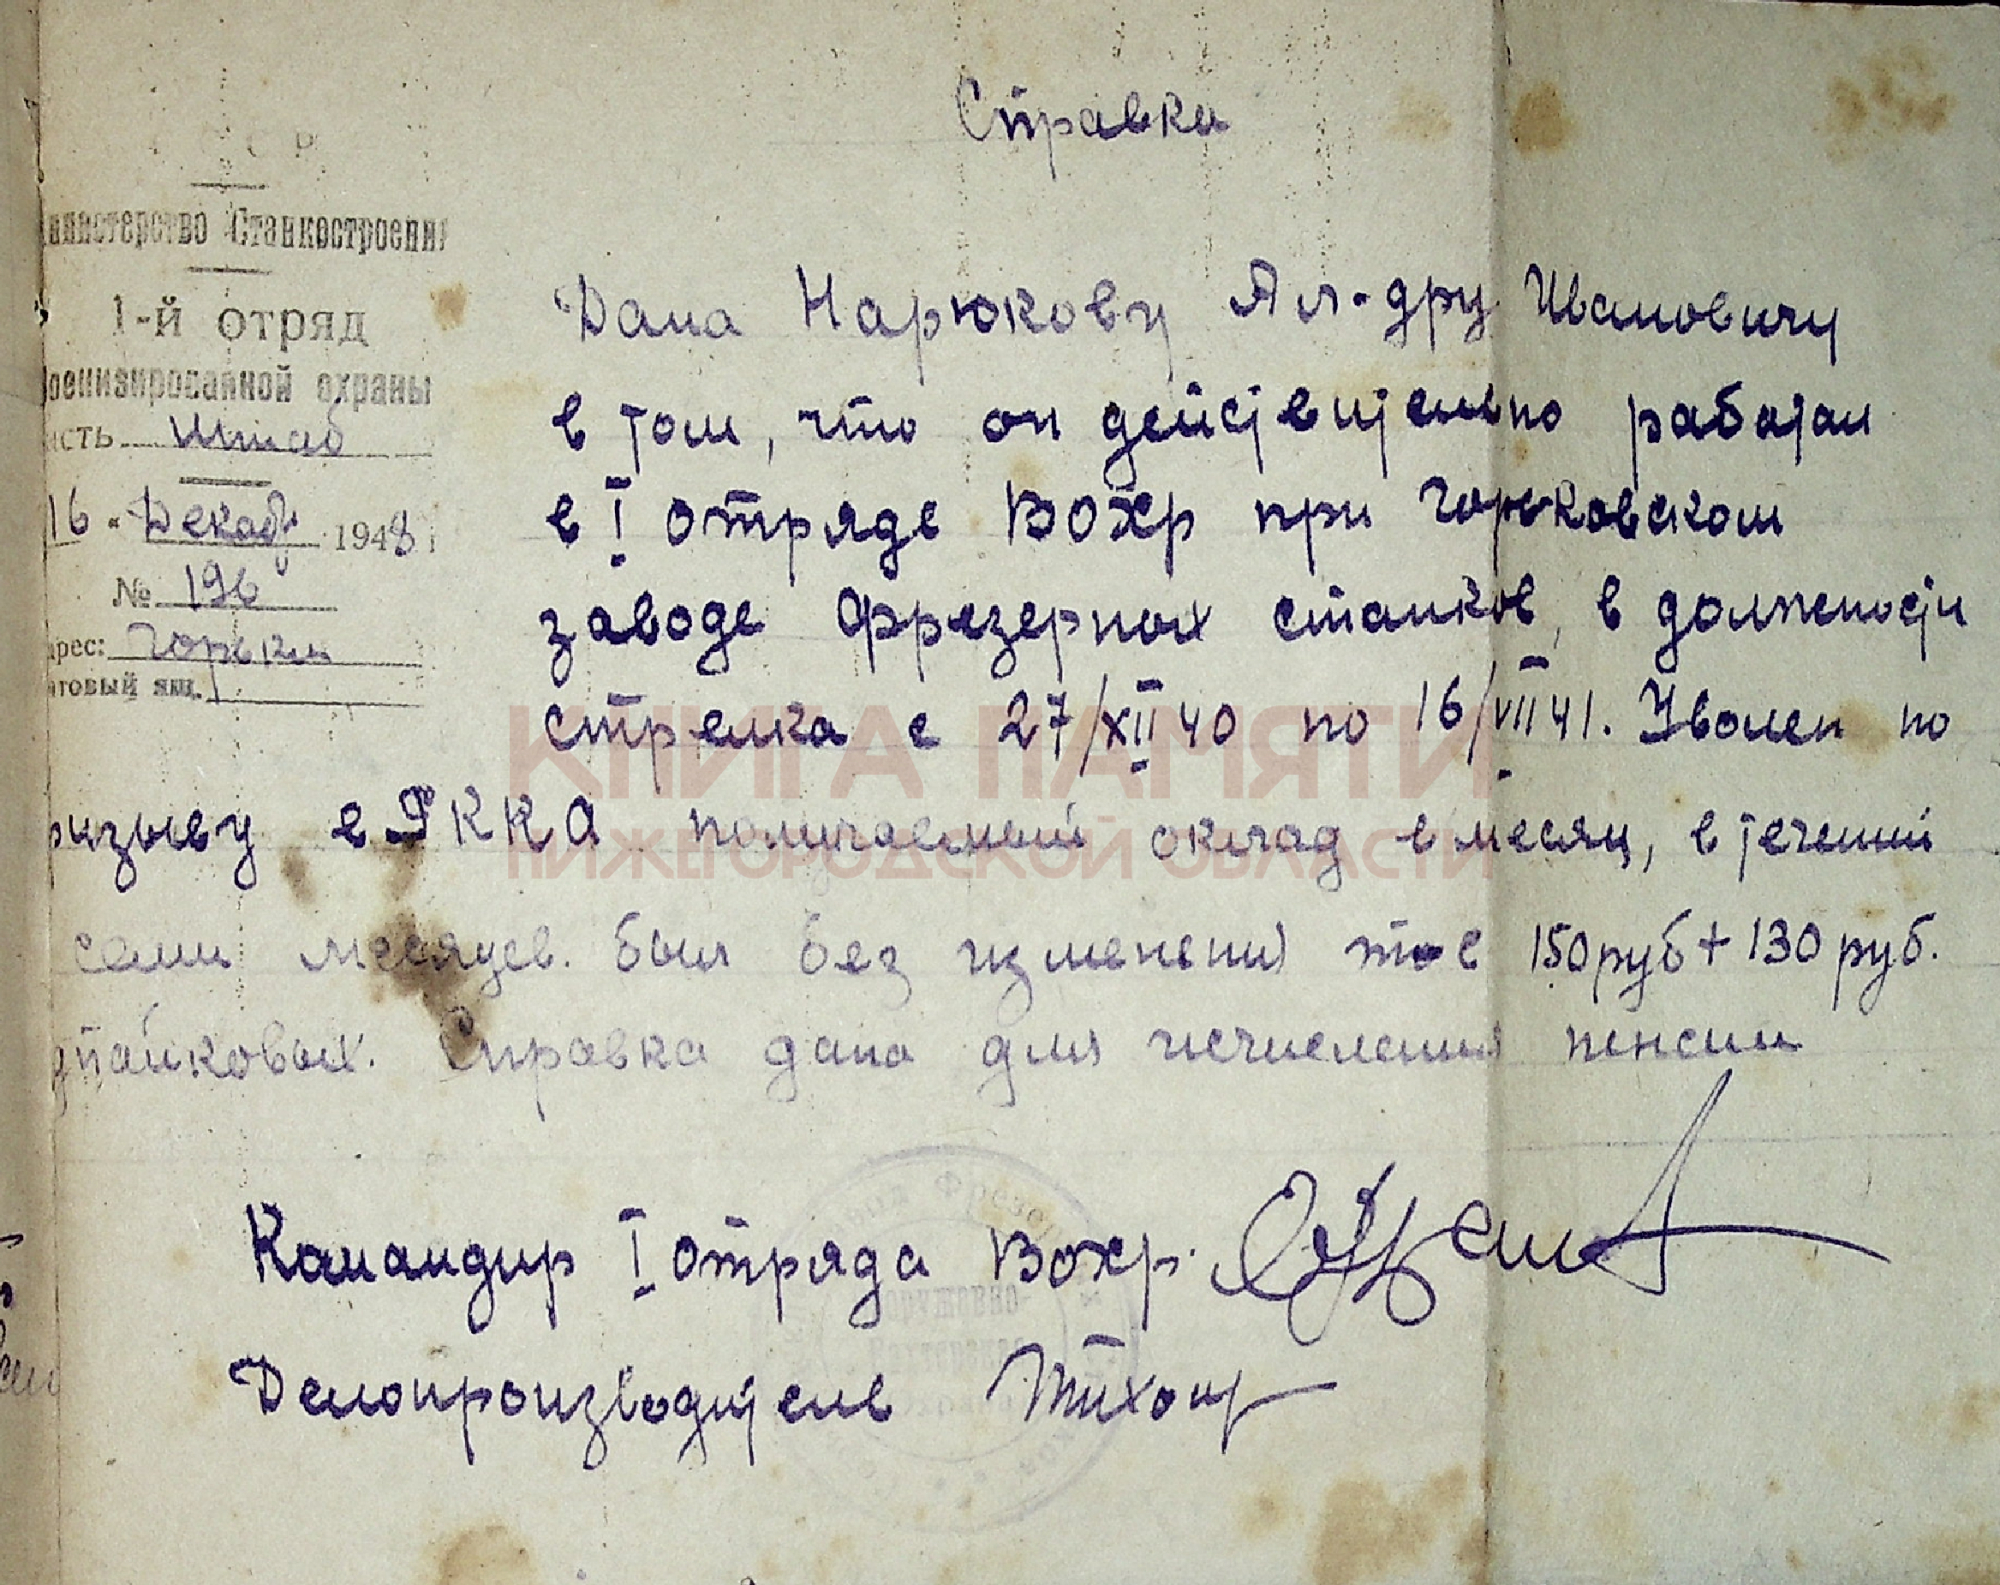 Справка
С С С Р
инистерство Станкостроения
1-й отряд
оенизированной охраны
исть Штаб
16 " Декабр 1948 г
№ 196
дрес: Горький
чтовый ящ.
Дана Нарюкову Ал-дру Ивановичу
в том, что он действительно работал
в I отряде Вохр при Горьковском
заводе Фрезерных станков, в должности
стрелка с 27/XII 40 по 16/VII 41. Уволен по
ризыву в РККА получаемый оклад в месяц, в течении
семи месяцев. был без изменения 150 руб + 130 руб.
дпайковых. Справка дана для исчисления пенсии
КНИГА ПАМЯТИ
НИЖЕГОРОДСКОЙ ОБЛАСТИ
Командир I отряда Вохр.
Делопроизводитель Тихон